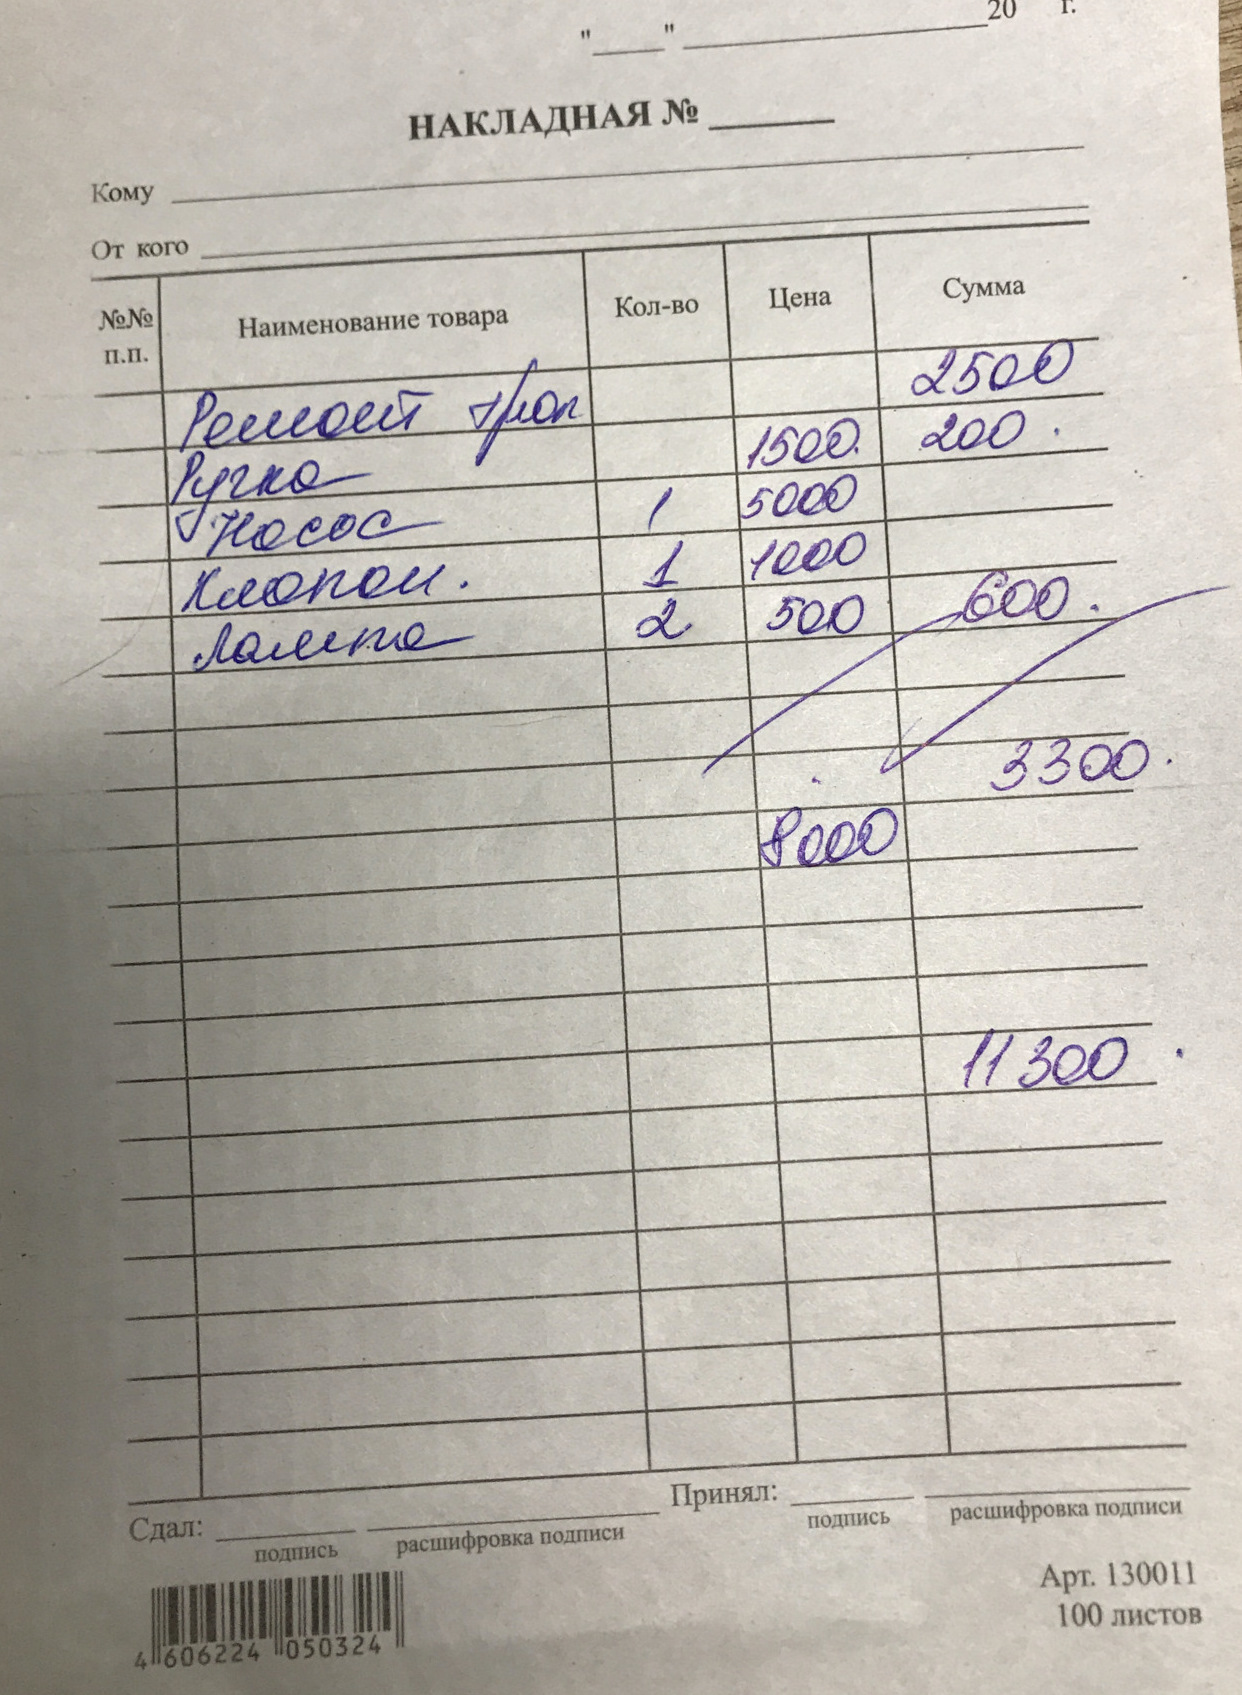 "____" ____________20 г.
НАКЛАДНАЯ № ______
Кому
От кого
№№ п.п. Наименование товара Кол-во Цена Сумма
Ремонт трап 2500
Ручка 1500. 200.
Насос 1 5000
Клапан. 1 1000
Лампа 2 500 600.
3300.
8000
11300.
Сдал: Принял:
подпись расшифровка подписи подпись расшифровка подписи
Арт. 130011
100 листов
4 606224 050324